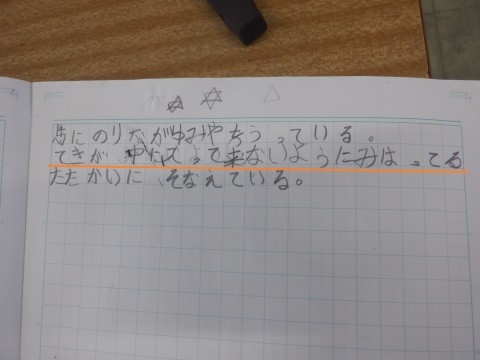 馬にのりながゆみやをうっている。
てきが中に入って来ないようにみはってる
たたかいに、そなえている。